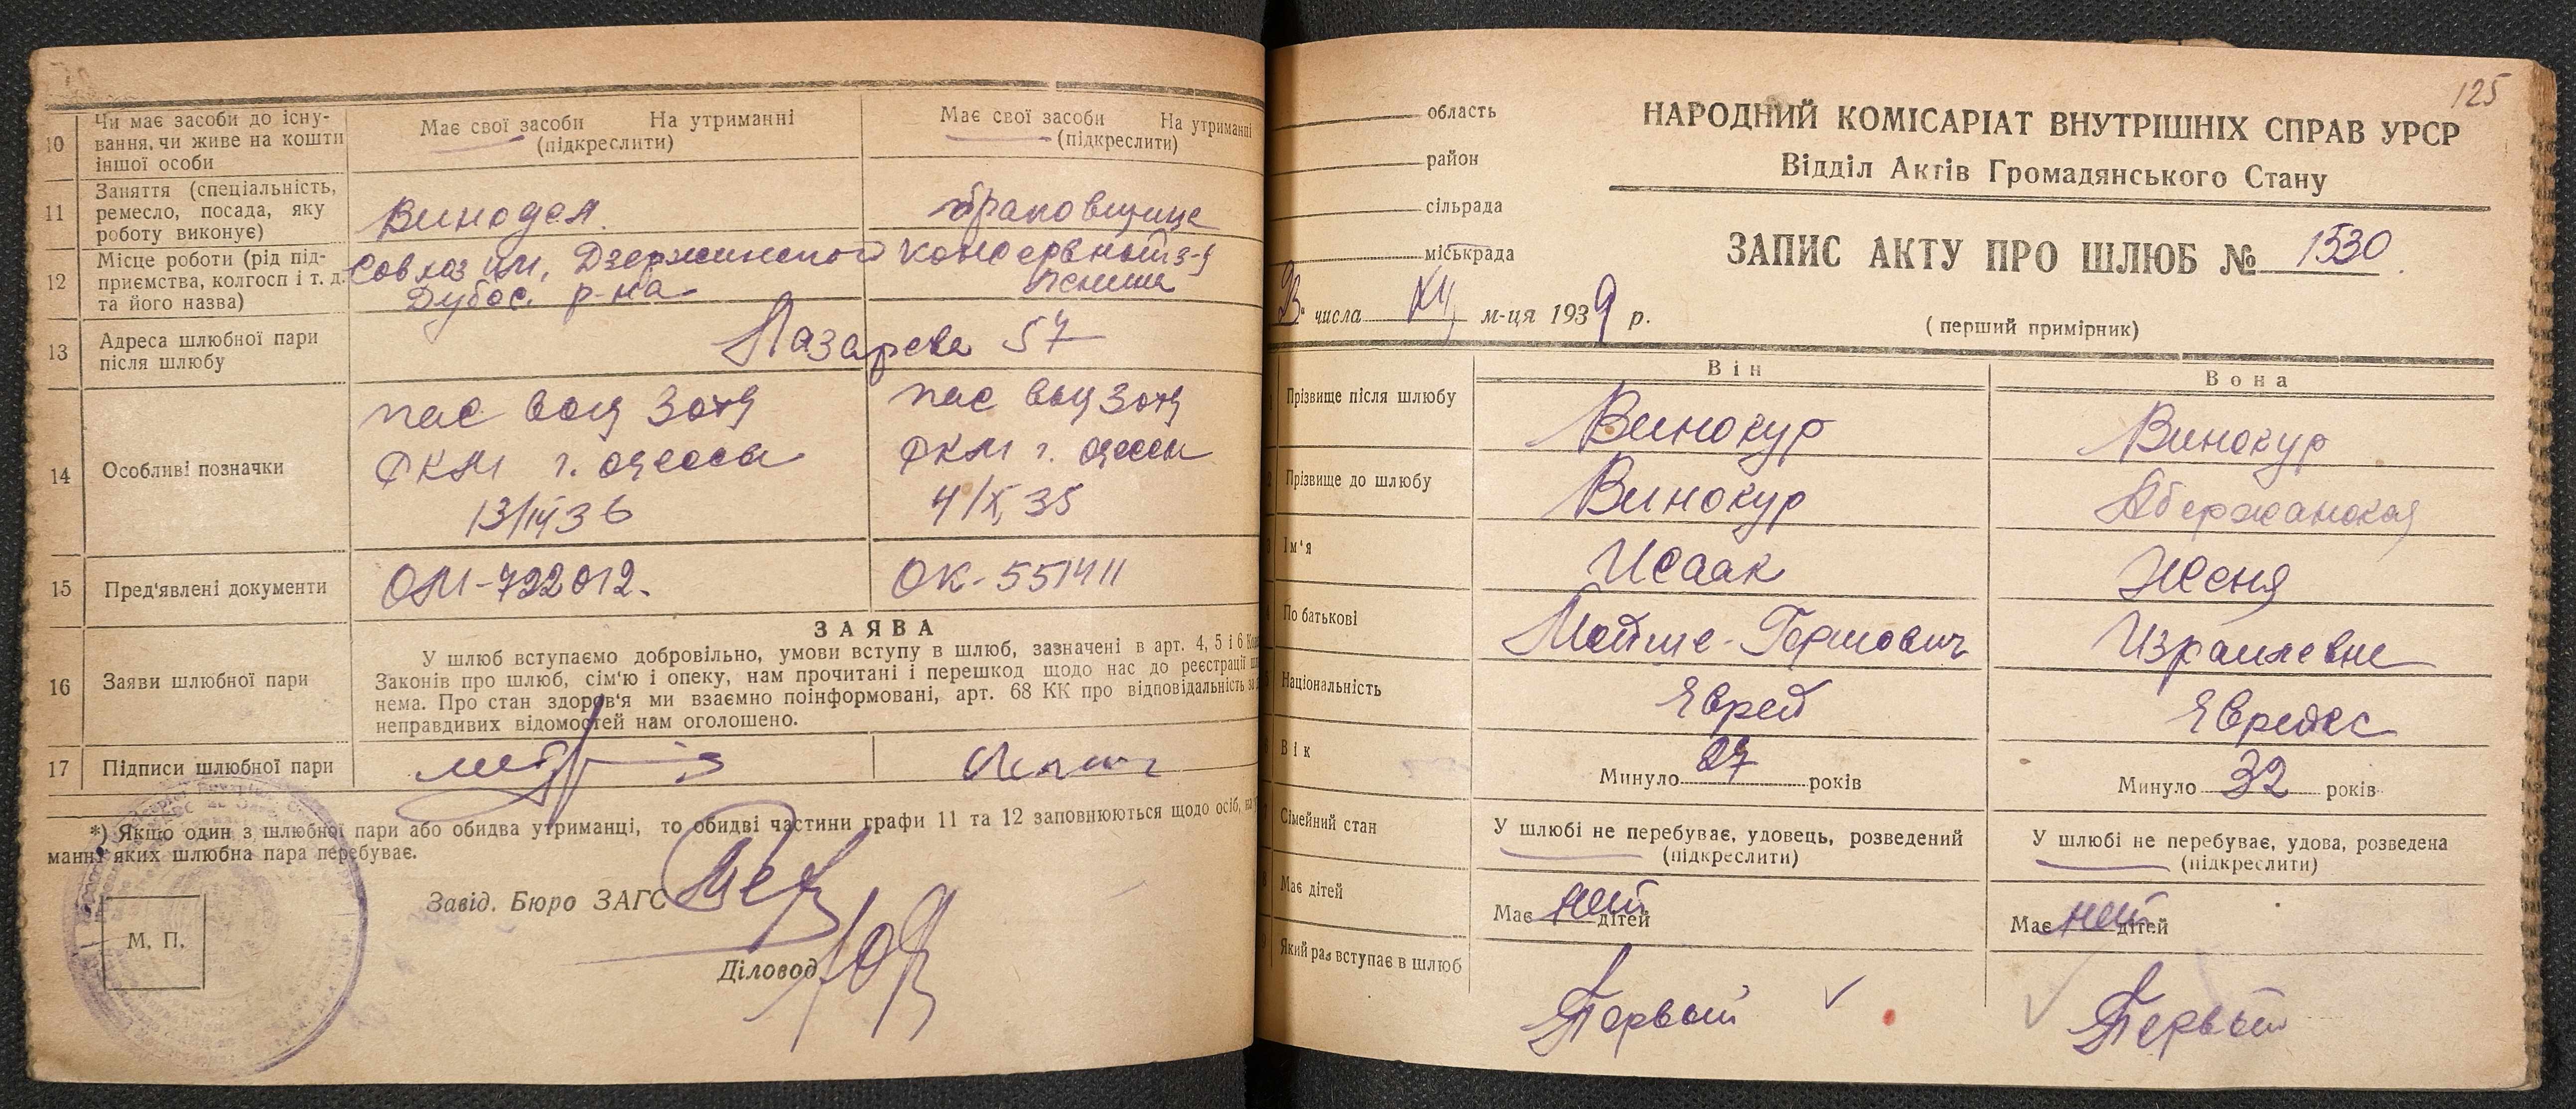 10 Чи має засоби до існування, чи живе на кошти іншої особи
Має свої засоби На утриманні
(підкреслити)
Має свої засоби На утриманні
(підкреслити)
11 Заняття (спеціальність, ремесло, посада, яку роботу виконує)
Винодел.
браковщица
12 Місце роботи (рід підприємства, колгосп і т. д. та його назва)
Совхоз им. Дзержинского
Дубос. р-на
Консервный з-д
Ленина
13 Адреса шлюбної пари після шлюбу
Лазарева 57
14 Особливі позначки
пас выд 3 отд
РКМ г. Одессы
13/IV 36
пас выд 3 отд
РКМ г. Одессы
4/X, 35
15 Пред'явлені документи
ОМ-722012.
ОК-551411
16 Заяви шлюбної пари
ЗАЯВА
У шлюб вступаємо добровільно, умови вступу в шлюб, зазначені в арт. 4, 5 і 6
Законів про шлюб, сім'ю і опеку, нам прочитані і перешкод щодо нас до реєстрації
нема. Про стан здоров'я ми взаємно поінформовані, арт. 68 КК про відповідальність за
неправдивих відомостей нам оголошено.
17 Підписи шлюбної пари
*) Якщо один з шлюбної пари або обидва утриманці, то обидві частини графи 11 та 12 заповнюються щодо осіб, на
манні яких шлюбна пара перебуває.
Завід. Бюро ЗАГС
Діловод
М. П.
125
область
район
сільрада
міськрада
НАРОДНИЙ КОМІСАРІАТ ВНУТРІШНІХ СПРАВ УРСР
Відділ Актів Громадянського Стану
ЗАПИС АКТУ ПРО ШЛЮБ № 1530.
23. числа XII м-ця 1939 р.
(перший примірник)
Він
Вона
Прізвище після шлюбу
Винокур
Винокур
Прізвище до шлюбу
Винокур
Абержанская
Ім'я
Исаак
Женя
По батькові
Мойше-Гершович
Израилевна
Національність
Еврей
Еврейка
Вік
Минуло 27 років
Минуло 32 років
Сімейний стан
У шлюбі не перебуває, удовець, розведений
(підкреслити)
У шлюбі не перебуває, удова, розведена
(підкреслити)
Має дітей
Має нет дітей
Має нет дітей
Який раз вступає в шлюб
Первый
Первый